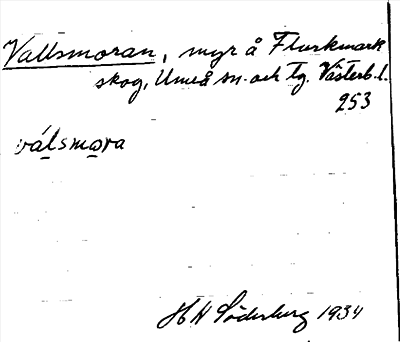 Vallsmoran, myr å Flurkmark
skog, Umeå sn. och tg. Västerb. l.
253
válsmo̲ra
H H Söderberg 1934